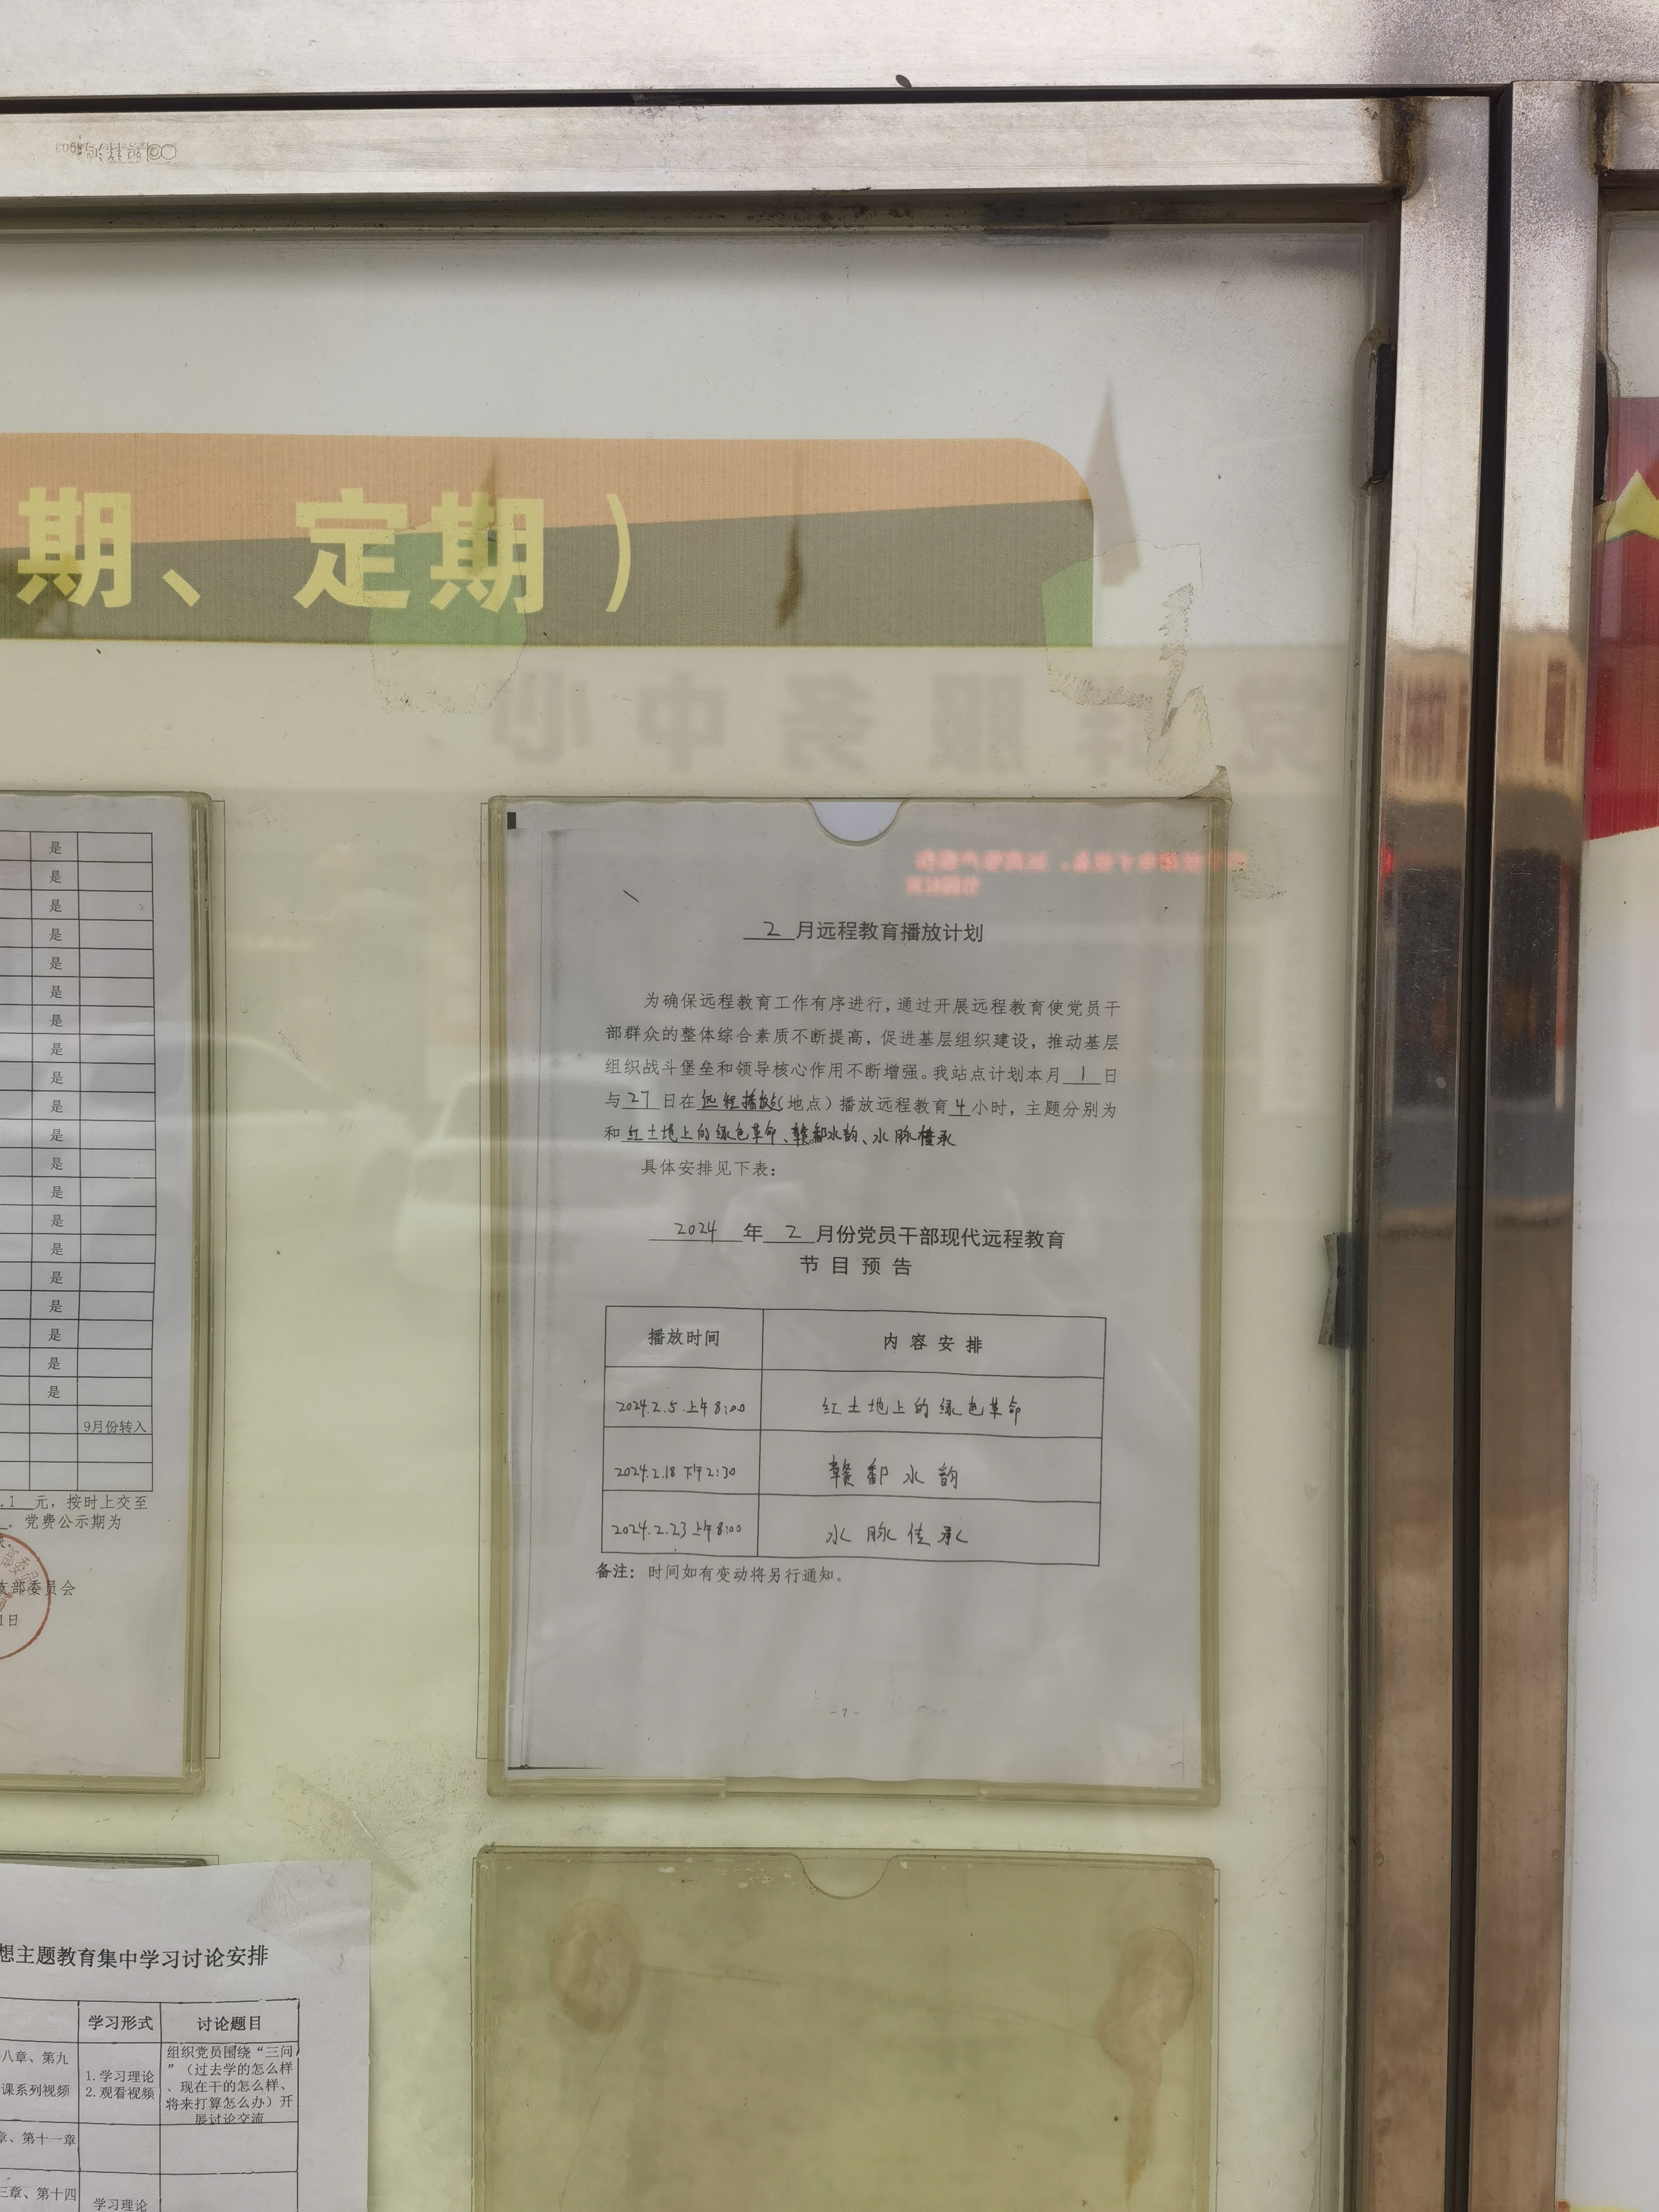 期、定期）
党群服务中心
是
是
是
是
是
是
是
是
是
是
是
是
是
是
是
是
是
是
是
是
9月份转入
.1 元，按时上交至
。党费公示期为
支部委员会
1日
2 月远程教育播放计划
为确保远程教育工作有序进行，通过开展远程教育使党员干
部群众的整体综合素质不断提高，促进基层组织建设，推动基层
组织战斗堡垒和领导核心作用不断增强。我站点计划本月 1 日
与 27 日在 远程播放点（地点）播放远程教育 4 小时，主题分别为
和 红土地上的绿色革命、赣鄱水韵、水脉传承
具体安排见下表：
2024 年 2 月份党员干部现代远程教育
节目预告
播放时间 内容安排
2024.2.5 上午8:00 红土地上的绿色革命
2024.2.18 下午2:30 赣鄱水韵
2024.2.23 上午8:00 水脉传承
备注：时间如有变动将另行通知。
- 7 -
想主题教育集中学习讨论安排
学习形式 讨论题目
八章、第九
课系列视频
1.学习理论
2.观看视频
组织党员围绕“三问
”（过去学的怎么样
、现在干的怎么样、
将来打算怎么办）开
展讨论交流
章、第十一章
三章、第十四
学习理论